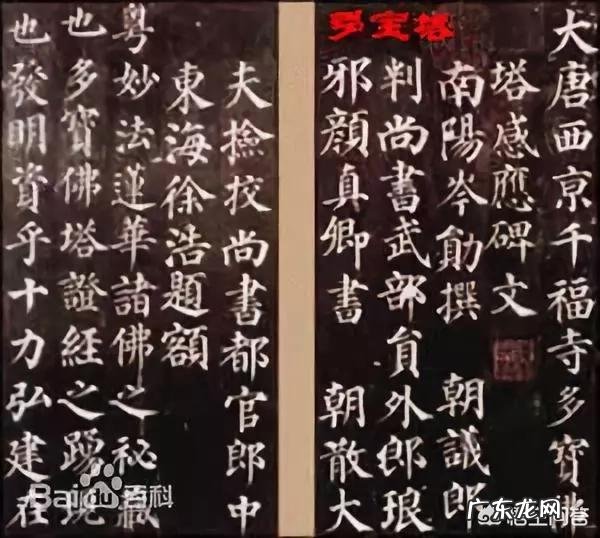 多宝塔
大唐西京千福寺多寶佛
塔感應碑文
南陽岑勛撰 朝議郎
判尚書武部員外郎琅
邪顏真卿書 朝散大
夫撿挍尚書都官郎中
東海徐浩題額
粤妙法蓮華諸佛之秘藏
也多寶佛塔證經之踴現
也發明資乎十力弘建在
Baidu百科
广东龙网